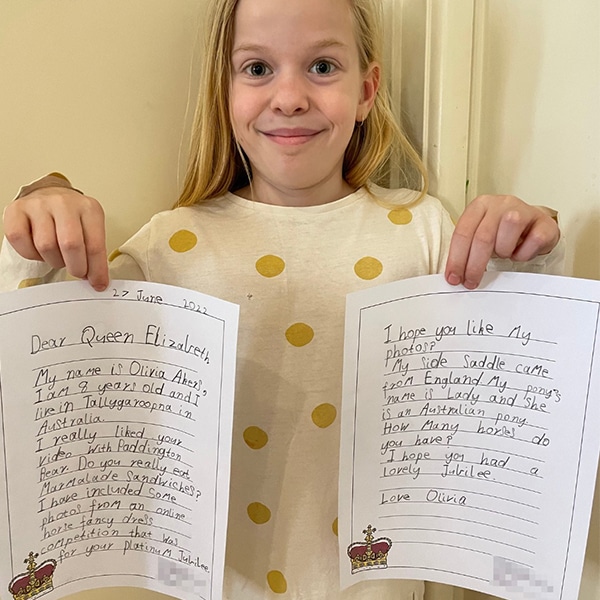 27 June 2022
Dear Queen Elizabeth,
My name is Olivia Akers,
I am 8 years old and I
live in Tallygaroopna in
Australia.
I really liked your
video with Paddington
Bear. Do you really eat
Marmalade sandwiches?
I have included some
photos from an online
horse fancy dress
competition that was
for your platinum Jubilee.
I hope you like My
photos?
My side Saddle came
from England My pony's
name is Lady and she
is an Australian pony.
How Many horses do
you have?
I hope you had a
lovely Jubilee.
Love Olivia